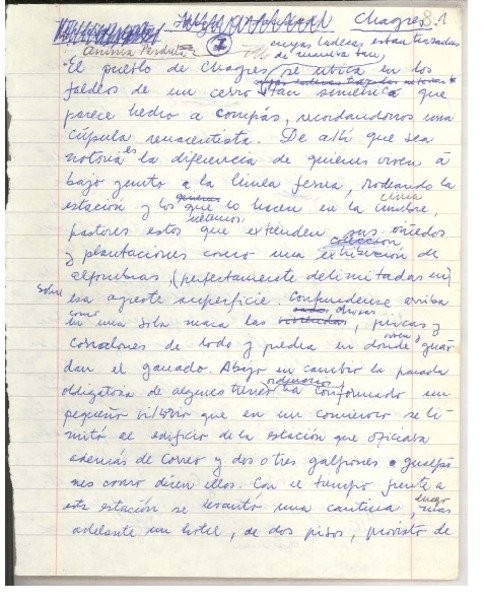 Chagres 8.1
Anima Perduta I cuyas laderas estan trazadas
de manera tan
El pueblo de Chagres se ubica en los
faldeos de un cerro tan simétrico que
parece hecho a compás, recordándonos una
cúpula renacentista. De allí que sea
notoria la diferencia de quienes viven a-
bajo junto a la línea férrea, rodeando la
estación y los que lo hacen en la cima
pastores estos que extienden sus viñedos
y plantaciones como una colección de
alfombras, (perfectamente delimitadas en)
sobre esa agreste superficie. Confúndense arriba
como en una sola masa las chozas, pircas y
corralones de lodo y piedra en donde
dan el ganado. Abajo en cambio la parada
obligatoria de algunos trenes ordinarios ha conformado un
pequeño villorio que en un comienzo se li-
mitó al edificio de la estación que oficiaba
además de Correo y dos o tres galpones o
nes como dicen ellos. Con el tiempo frente a
esta estación se levantó una cantina, luego más
adelante un hotel, de dos pisos, provisto de